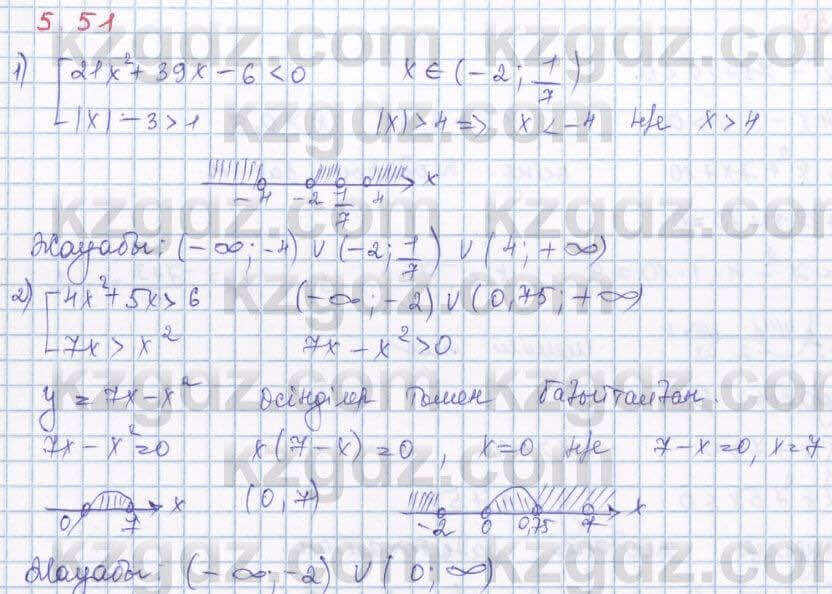 5.51
1) [21x²+39x−6<0 x∈(−2; 1/7)
|x|−3>1 |x|>4 => x<−4 н/е x>4
−4 −2 1/7 4 x
Жауабы: (−∞;−4) ∪ (−2; 1/7) ∪ (4; +∞)
2) [4x²+5x>6 (−∞;−2) ∪ (0,75; +∞)
7x>x² 7x−x²>0
y = 7x−x² төмен бағытталған.
7x−x²=0 x(7−x)=0, x=0 н/е 7−x=0, x=7
0 7 x (0,7) −2 0 0,75 7 x
Жауабы: (−∞;−2) ∪ (0; ∞)
kzgdz.com